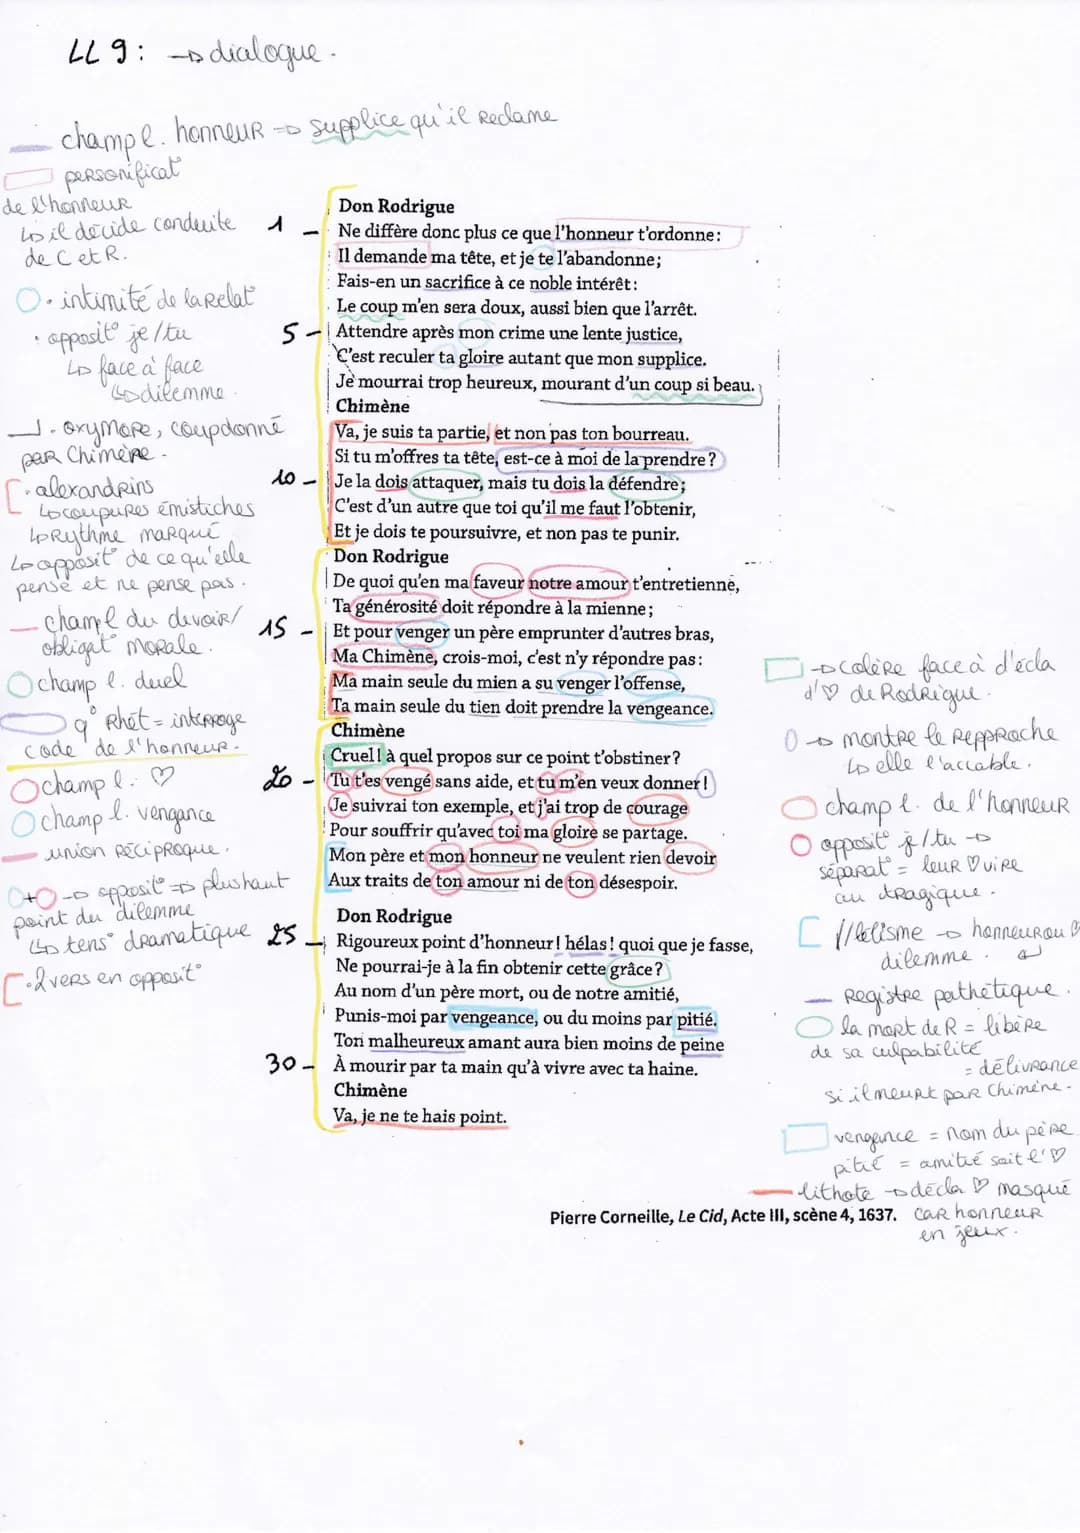 LL 9 : → dialogue.
champ l. honneur → supplice qu'il reclame
personificat°
de l'honneur
↳ il décide conduite
de C et R.
• intimité de la relat°
• opposit° je/tu
↳ face à face
↳ dilemme.
• oxymore, coup donné
par Chimène.
• alexandrins
↳ coupures émistiches
↳ Rythme marqué
↳ opposit° de ce qu'elle
pense et ne pense pas.
champ l du devoir/
obligat° morale.
champ l. duel
q° Rhét = interroge
code de l'honneur.
champ l. ♡
champ l. vengance
union réciproque.
+ → opposit° ⇒ plus haut
point du dilemme
↳ tens° dramatique
• 2 vers en opposit°
Don Rodrigue
1 – Ne diffère donc plus ce que l'honneur t'ordonne :
Il demande ma tête, et je te l'abandonne ;
Fais-en un sacrifice à ce noble intérêt :
Le coup m'en sera doux, aussi bien que l'arrêt.
5 – Attendre après mon crime une lente justice,
C'est reculer ta gloire autant que mon supplice.
Je mourrai trop heureux, mourant d'un coup si beau.
Chimène
Va, je suis ta partie, et non pas ton bourreau.
Si tu m'offres ta tête, est-ce à moi de la prendre ?
10 – Je la dois attaquer, mais tu dois la défendre ;
C'est d'un autre que toi qu'il me faut l'obtenir,
Et je dois te poursuivre, et non pas te punir.
Don Rodrigue
De quoi qu'en ma faveur notre amour t'entretienne,
Ta générosité doit répondre à la mienne ;
15 – Et pour venger un père emprunter d'autres bras,
Ma Chimène, crois-moi, c'est n'y répondre pas :
Ma main seule du mien a su venger l'offense,
Ta main seule du tien doit prendre la vengeance.
Chimène
Cruel ! à quel propos sur ce point t'obstiner ?
20 – Tu t'es vengé sans aide, et tu m'en veux donner !
Je suivrai ton exemple, et j'ai trop de courage
Pour souffrir qu'avec toi ma gloire se partage.
Mon père et mon honneur ne veulent rien devoir
Aux traits de ton amour ni de ton désespoir.
Don Rodrigue
25 – Rigoureux point d'honneur ! hélas ! quoi que je fasse,
Ne pourrai-je à la fin obtenir cette grâce ?
Au nom d'un père mort, ou de notre amitié,
Punis-moi par vengeance, ou du moins par pitié.
Ton malheureux amant aura bien moins de peine
30 – À mourir par ta main qu'à vivre avec ta haine.
Chimène
Va, je ne te hais point.
Pierre Corneille, Le Cid, Acte III, scène 4, 1637.
→ colère face à d'écla
d'♡ de Rodrigue.
→ montre le repproche
↳ elle l'accable.
champ l. de l'honneur
opposit° je/tu →
séparat° = leur ♡ vire
au tragique.
//lélisme → honneur ou ♡
dilemme.
Registre pathétique.
la mort de R = libère
de sa culpabilité
= délivrance
si il meurt par Chimène.
vengence = nom du père
pitié = amitié soit l'♡
lithote → décla ♡ masqué
car honneur
en jeux.